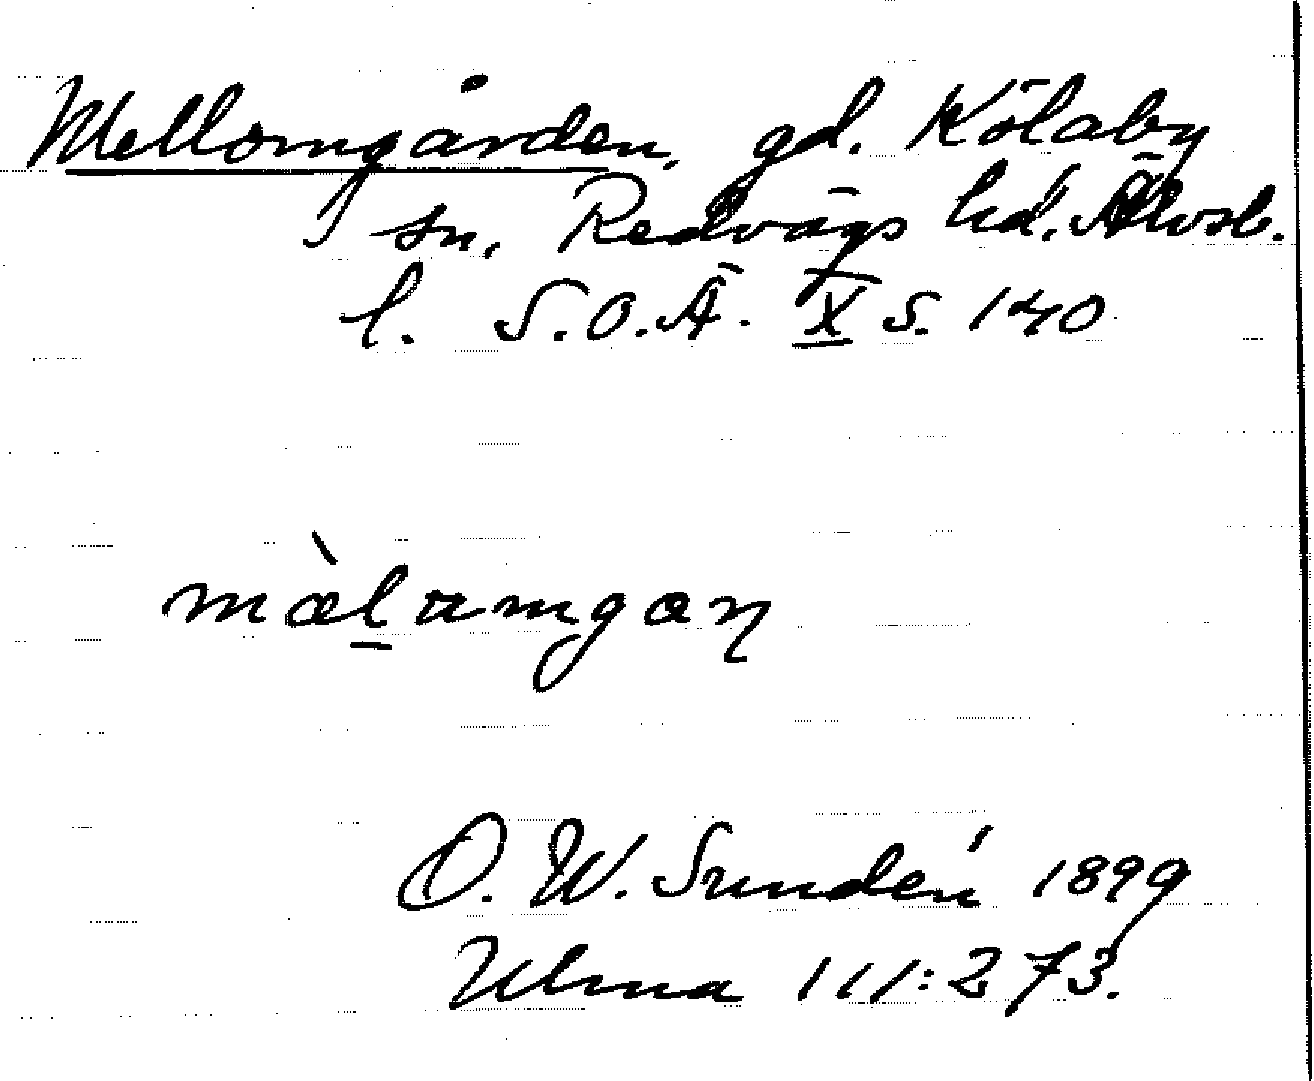 Mellomgården, gd. Kölaby
sn, Redvägs hd. Älvsb.
l. S.O.Ä. X s. 140
mæ̀l̲amgaη
O. W. Sundén 1899
Ulma 111:273.